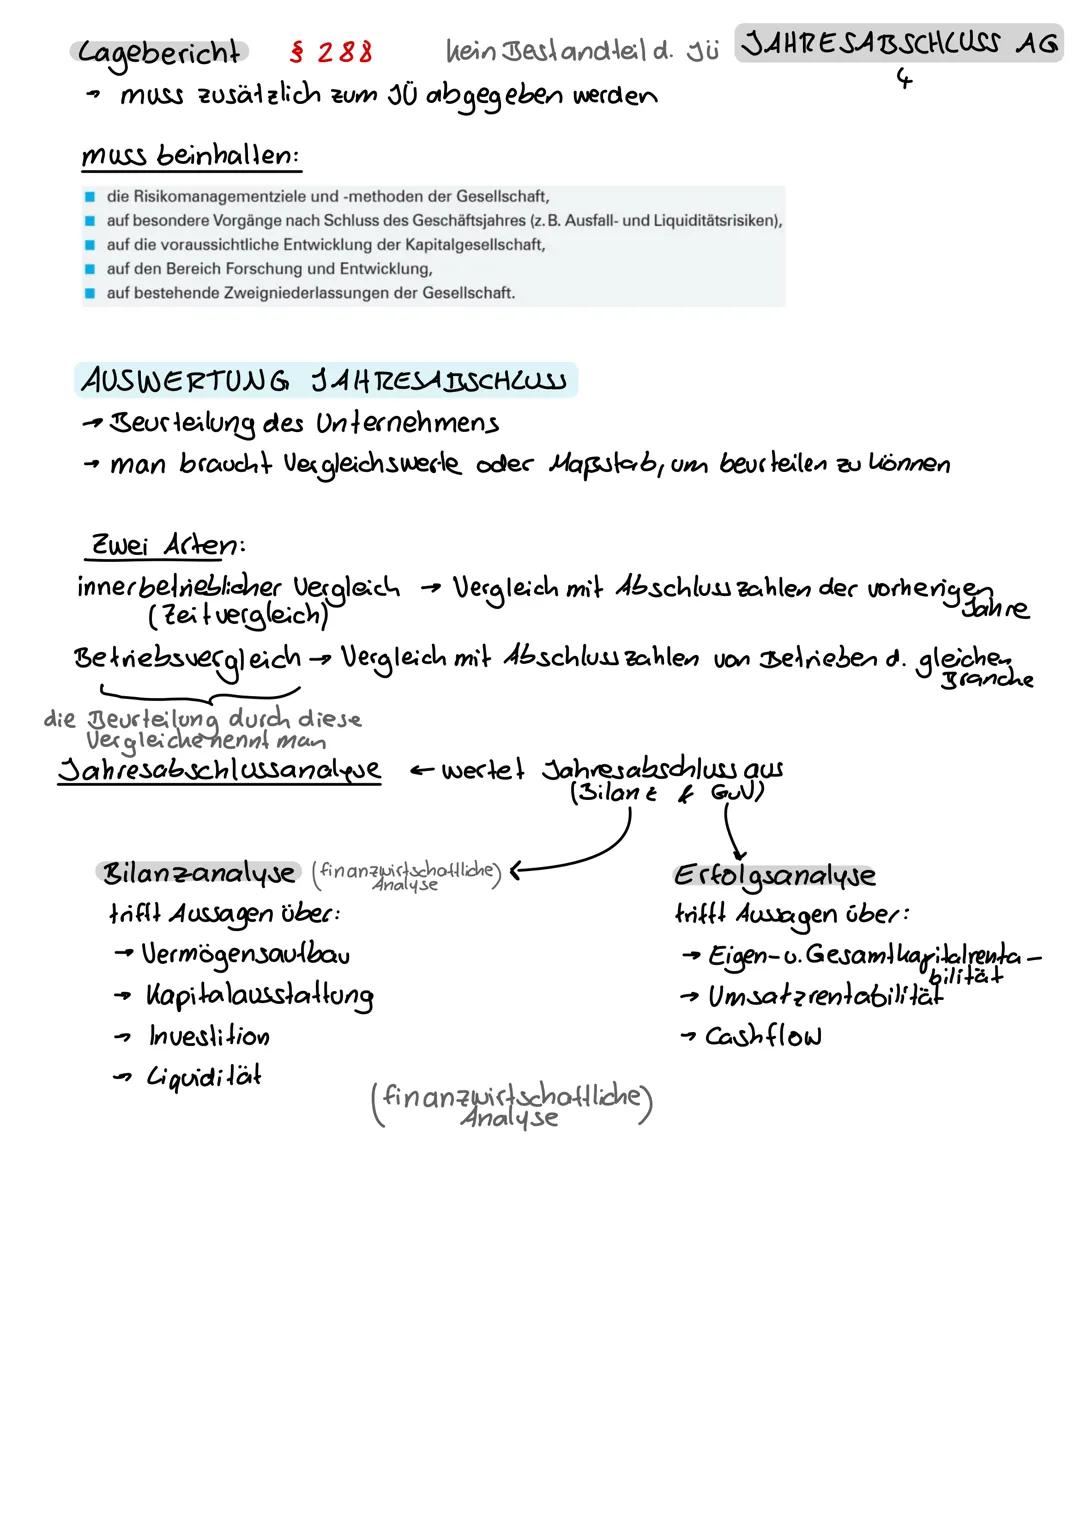 Lagebericht § 288 kein Bestandteil d. JÜ JAHRESABSCHLUSS AG
4
→ muss zusätzlich zum JÜ abgegeben werden
muss beinhalten:
■ die Risikomanagementziele und -methoden der Gesellschaft,
■ auf besondere Vorgänge nach Schluss des Geschäftsjahres (z. B. Ausfall- und Liquiditätsrisiken),
■ auf die voraussichtliche Entwicklung der Kapitalgesellschaft,
■ auf den Bereich Forschung und Entwicklung,
■ auf bestehende Zweigniederlassungen der Gesellschaft.
AUSWERTUNG JAHRESABSCHLUSS
→ Beurteilung des Unternehmens
→ man braucht Vergleichswerte oder Maßstab, um beurteilen zu können
Zwei Arten:
innerbetrieblicher Vergleich → Vergleich mit Abschlusszahlen der vorherigen
(Zeitvergleich) Jahre
Betriebsvergleich → Vergleich mit Abschlusszahlen von Betrieben d. gleichen
Branche
die Beurteilung durch diese
Vergleiche nennt man
Jahresabschlussanalyse ← wertet Jahresabschluss aus
(Bilanz & GuV)
Bilanzanalyse (finanzwirtschaftliche) Erfolgsanalyse
Analyse
trifft Aussagen über: trifft Aussagen über:
→ Vermögensaufbau → Eigen- u. Gesamtkapitalrenta-
bilität
→ Kapitalausstattung → Umsatzrentabilität
→ Investition → Cashflow
→ Liquidität
(finanzwirtschaftliche)
Analyse